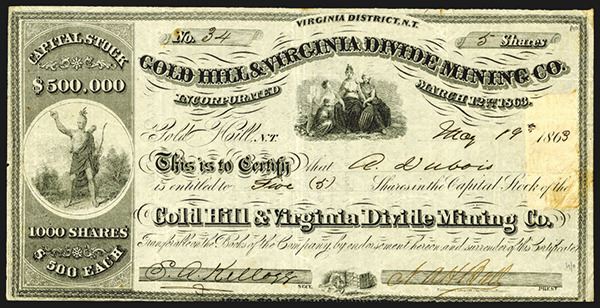 VIRGINIA DISTRICT, N.T.
No. 34
5 Shares
GOLD HILL & VIRGINIA DIVIDE MINING CO.
INCORPORATED MARCH 12TH 1863.
CAPITAL STOCK
$500,000
1000 SHARES
$500 EACH
Gold Hill, N.T. May 19th 1863
This is to Certify that A. Dubois
is entitled to Five (5) Shares in the Capital Stock of the
Gold Hill & Virginia Divide Mining Co.
Transferable on the Books of the Company, by endorsement hereon and surrender of this Certificate
E. A. Kellogg SECY.
PREST.